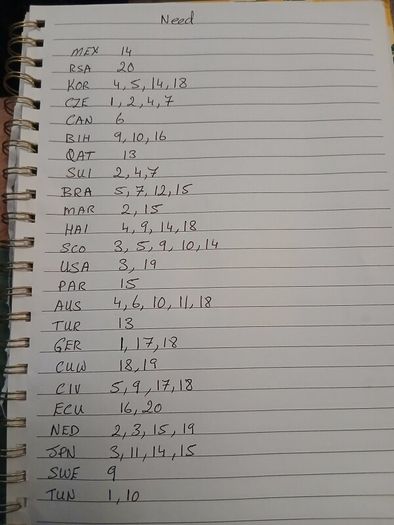 Need
MEX 14
RSA 20
KOR 4, 5, 14, 18
CZE 1, 2, 4, 7
CAN 6
BIH 9, 10, 16
QAT 13
SUI 2, 4, 7
BRA 5, 7, 12, 15
MAR 2, 15
HAI 4, 9, 14, 18
SCO 3, 5, 9, 10, 14
USA 3, 19
PAR 15
AUS 4, 6, 10, 11, 18
TUR 13
GER 1, 17, 18
CUW 18, 19
CIV 5, 9, 17, 18
ECU 16, 20
NED 2, 3, 15, 19
JPN 3, 11, 14, 15
SWE 9
TUN 1, 10